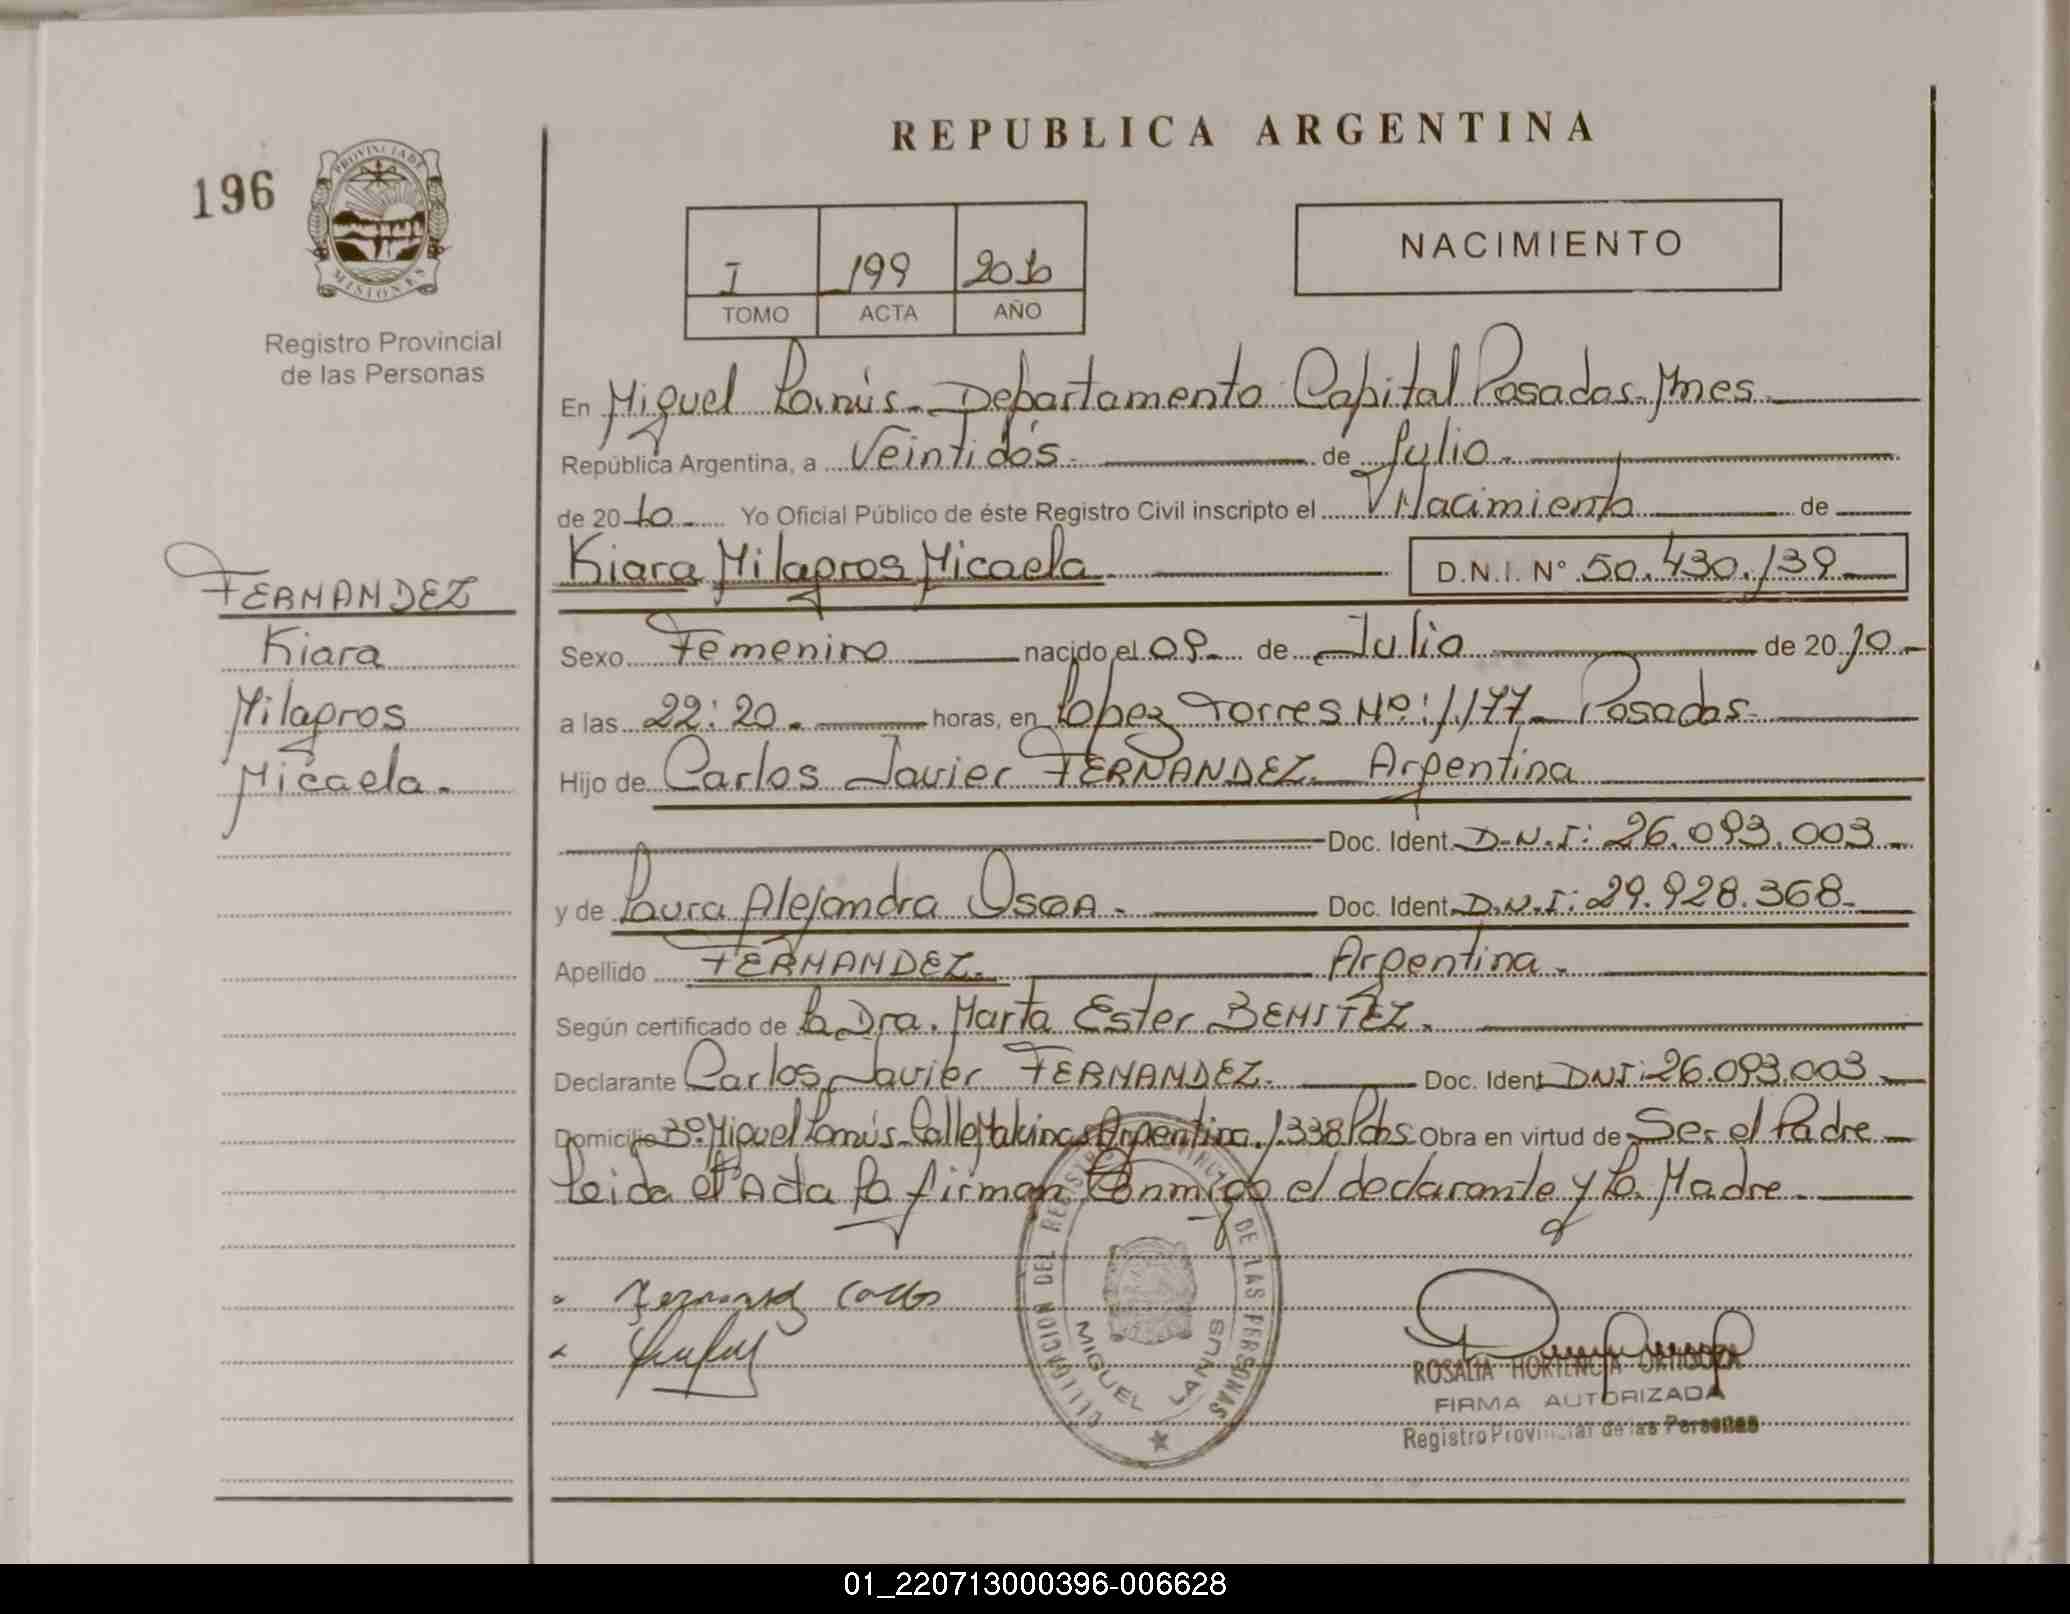 REPUBLICA ARGENTINA
196
PROVINCIA DE
MISIONES
Registro Provincial
de las Personas
I 199 2010
TOMO ACTA AÑO
NACIMIENTO
En Miguel Lanús - Departamento Capital Posadas - Mnes
República Argentina, a Veintidós - de Julio -
de 2010 - Yo Oficial Público de éste Registro Civil inscripto el Nacimiento de
Kiara Milagros Micaela D.N.I. Nº 50.430.139
FERNANDEZ
Kiara
Milagros
Micaela.
Sexo Femenino nacido el 09 de Julio de 2010 -
a las 22:20 - horas, en Lopez Torres Nº: 1.177 - Posadas -
Hijo de Carlos Javier FERNANDEZ - Argentina
Doc. Ident. D.N.I: 26.093.003 -
y de Laura Alejandra Doc. Ident. D.N.I: 29.928.368 -
Apellido FERNANDEZ. Argentina -
Según certificado de la Dra. Marta Ester BENITEZ.
Declarante Carlos Javier FERNANDEZ - Doc. Ident. DNI: 26.093.003
Domicilio Bº Miguel Lanús - Calle Argentina 1338 Pdas Obra en virtud de Ser el Padre
Leida el Acta la firman Conmigo el declarante y la Madre -
DELEGACION DEL REGISTRO PROVINCIAL DE LAS PERSONAS
MIGUEL LANUS
Fernandez Carlos
ROSALIA HORTENCIA
FIRMA AUTORIZADA
Registro Provincial de las Personas
01_220713000396-006628